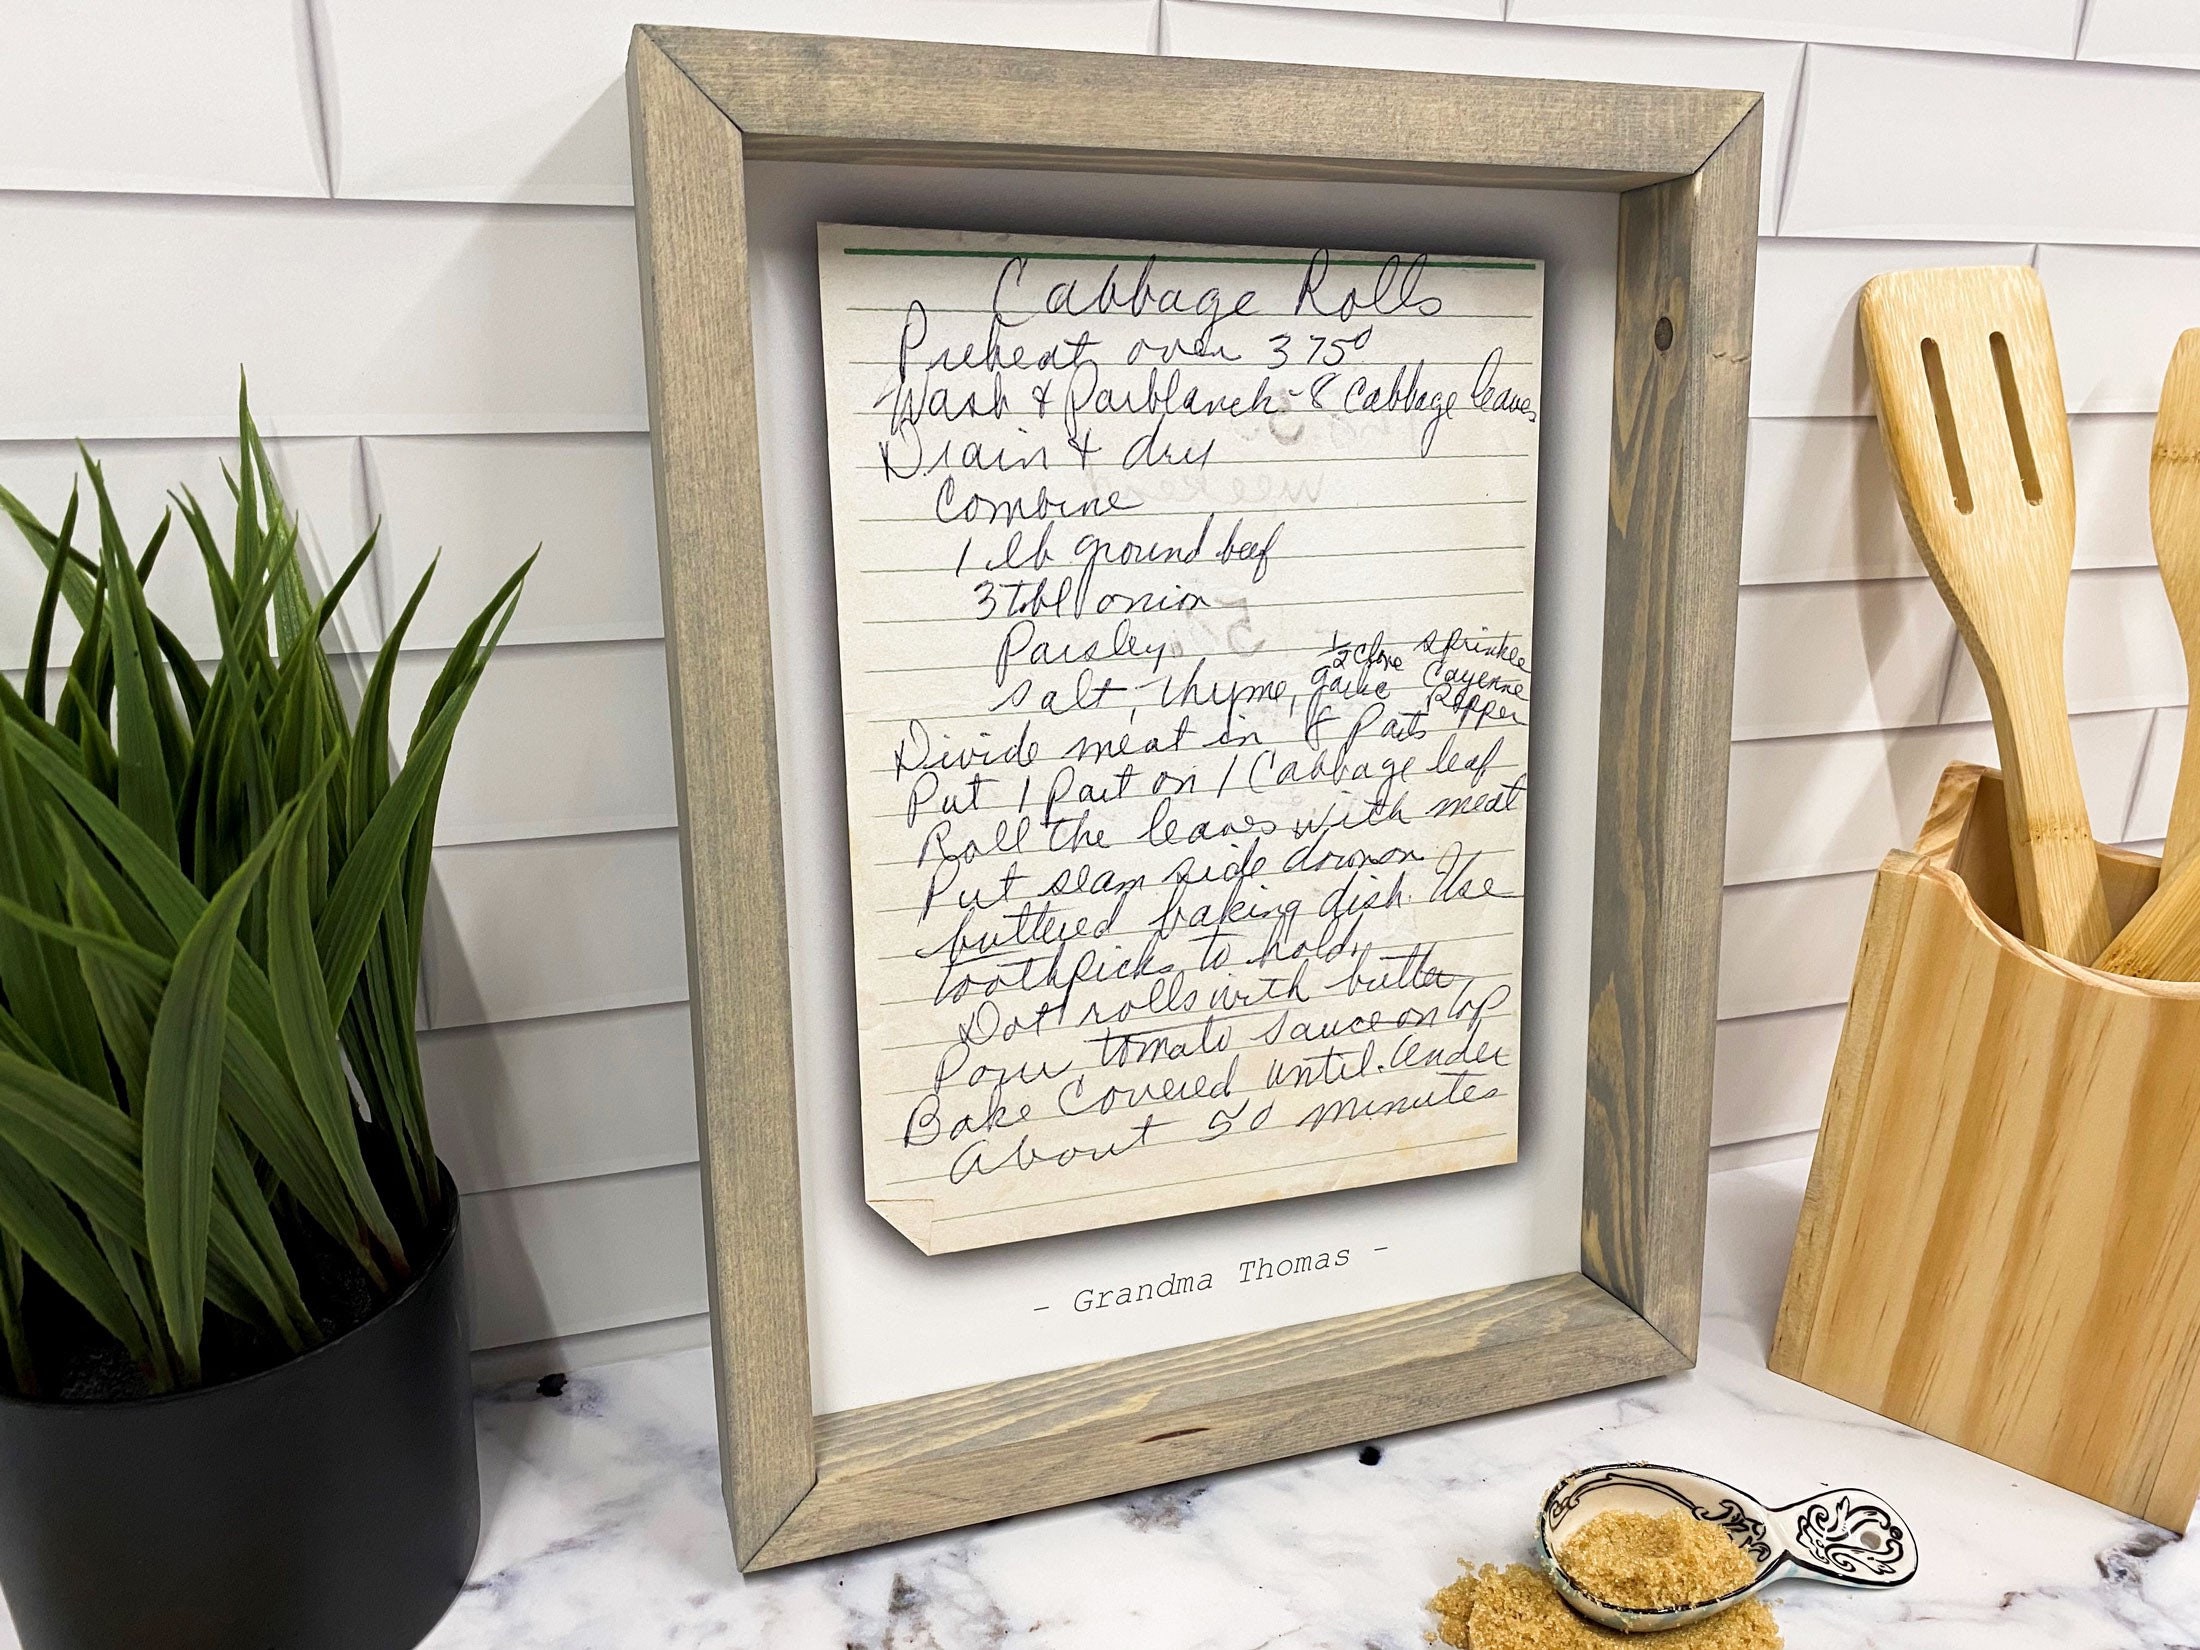 Cabbage Rolls
Preheat oven 375°
Wash & Parblanch - 8 Cabbage leaves
Drain & dry
Combine
1 lb ground beef
3 tbl onion
Parsley
salt, thyme, ½ clove garlic sprinkle Cayenne Pepper
Divide meat in 8 Parts
Put 1 Part on 1 Cabbage leaf
Roll the leaves with meat
Put seam side down on
buttered baking dish. Use
toothpicks to hold.
Dot rolls with butter
Pour tomato sauce on top
Bake Covered until tender
About 50 minutes
- Grandma Thomas -